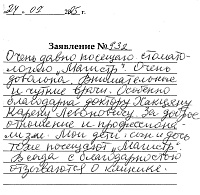 24.02 2005 г.
Заявление № 932
Очень давно посещаю стомато-
логию „Магистр". Очень
довольна. Внимательные
и чуткие врачи. Особенно
благодарна доктору
Карену Левоновичу. За доброе
отношение и профессиона-
лизм. Мои дети: сын и дочь
тоже посещают „Магистр".
Всегда с благодарностью
отзываются о клинике.